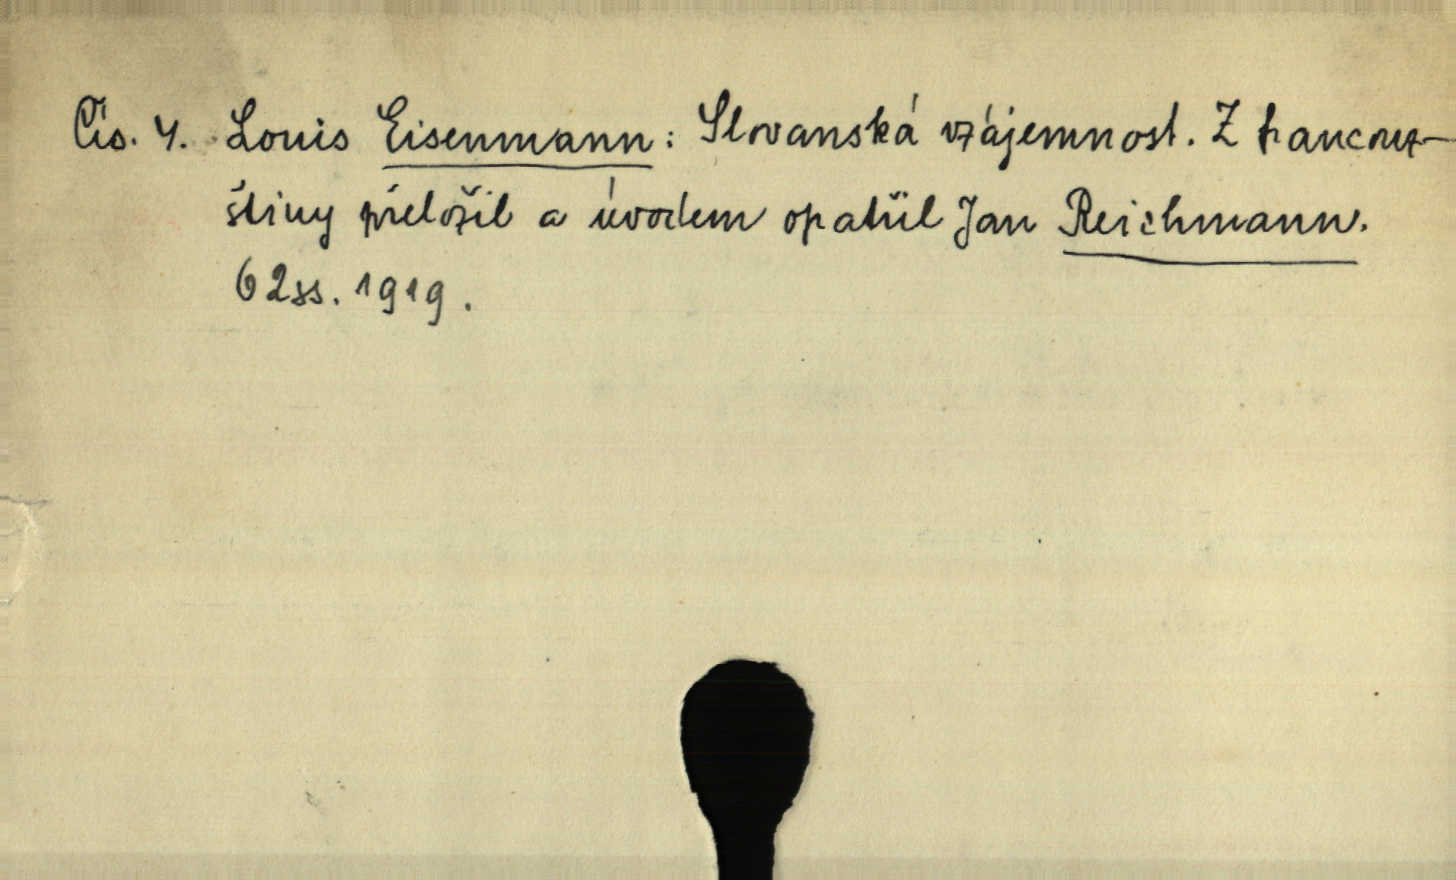 Čís. 4. Louis Eisenmann: Slovanská vzájemnost. Z francouz-
štiny přeložil a úvodem opatřil Jan Reichmann.
62ss. 1919.